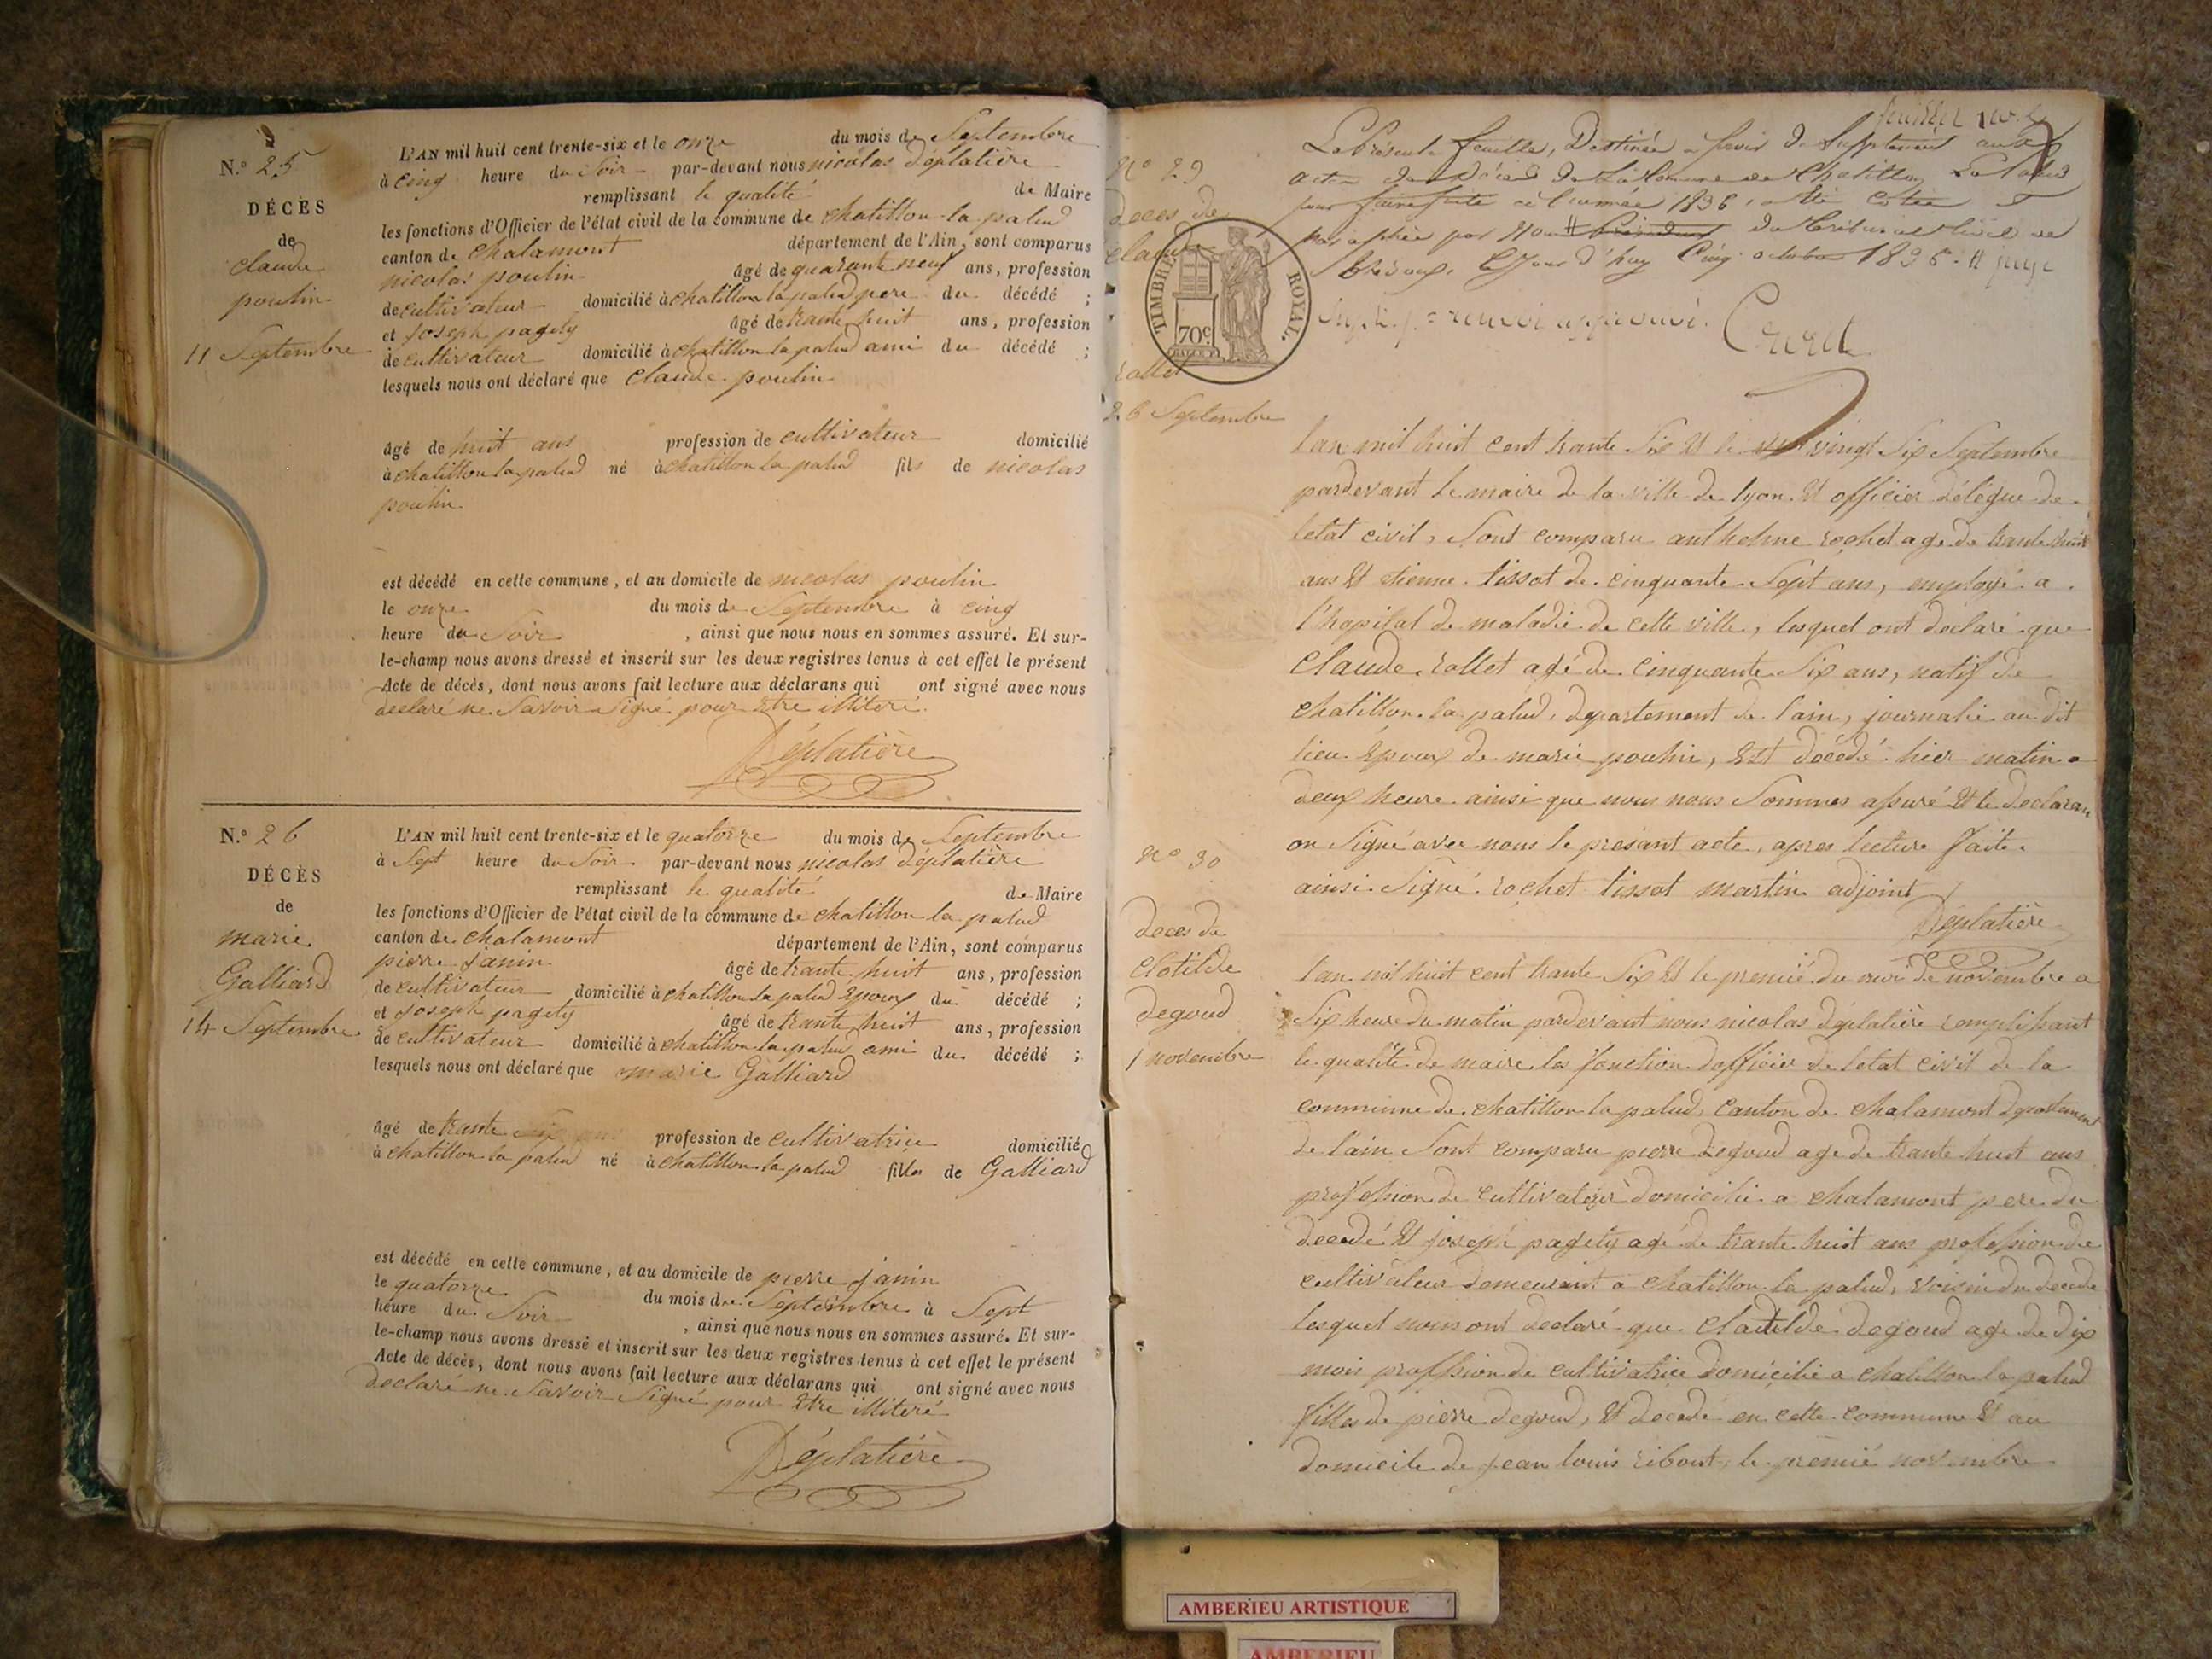 N.o 25
DÉCÈS
de
claude
poulin
11 Septembre
L'AN mil huit cent trente-six et le onze du mois de Septembre
à cinq heure du Soir par-devant nous nicolas déplatière
remplissant le qualité de Maire
les fonctions d'Officier de l'état civil de la commune de chatillon la palud
canton de chalamont département de l'Ain, sont comparus
nicolas poulin âgé de quarante neuf ans, profession
de cultivateur domicilié à chatillon la palud pere du décédé ;
et joseph pagety âgé de trante huit ans, profession
de cultivateur domicilié à chatillon la palud ami du décédé ;
lesquels nous ont déclaré que claude poulin
âgé de huit ans profession de cultivateur domicilié
à chatillon la palud né à chatillon la palud fils de nicolas
poulin
est décédé en cette commune, et au domicile de nicolas poulin
le onze du mois de Septembre à cinq
heure du Soir , ainsi que nous nous en sommes assuré. Et sur-
le-champ nous avons dressé et inscrit sur les deux registres tenus à cet effet le présent
Acte de décès, dont nous avons fait lecture aux déclarans qui ont signé avec nous
declaré ne Savoir Signe pour Etre illiteré.
Déplatière
N.o 26
DÉCÈS
de
marie
Galliard
14 Septembre
L'AN mil huit cent trente-six et le quatorze du mois de Septembre
à Sept heure du Soir par-devant nous nicolas déplatière
remplissant le qualité de Maire
les fonctions d'Officier de l'état civil de la commune de chatillon la palud
canton de chalamont département de l'Ain, sont comparus
pierre janin âgé de trante huit ans, profession
de cultivateur domicilié à chatillon la palud Epoux du décédé ;
et joseph pagety âgé de trante huit ans, profession
de cultivateur domicilié à chatillon la palud ami du décédé ;
lesquels nous ont déclaré que marie Galliard
âgé de trante Six ans profession de cultivatrice domicilié
à chatillon la palud né à chatillon la palud filles de Galliard
est décédé en cette commune, et au domicile de pierre janin
le quatorze du mois de Septembre à Sept
heure du Soir , ainsi que nous nous en sommes assuré. Et sur-
le-champ nous avons dressé et inscrit sur les deux registres tenus à cet effet le présent
Acte de décès, dont nous avons fait lecture aux déclarans qui ont signé avec nous
declaré ne Savoir Signé pour Etre illiteré
Déplatière
La Présente feuille, Destinée a Servir de Supplément aux
actes de Décès de la Commune de Chatillon La Palud
pour faire suite a l'année 1836, a été cotée et
paraphée par Nous # Président du Tribunal Civil de
Trévoux, Ce Jour d'huy Cinq octobre 1836. # juge
renvoi approuvé.
TIMBRE ROYAL.
70c.
no 29
deces de
claude
rollet
26 Septembre
lan mil huit cent trante Six Et le vingt Six Septembre
pardevant le maire de la ville de lyon Et officier délégue de
letat civil, Sont comparu anthelme rochet age de trante huit
ans Et etienne tissot de cinquante Sept ans, employé a
l'hopital de maladie de cette ville, lesquel ont declaré que
Claude rollet agé de cinquante Six ans, natif de
chatillon la palud, departement de lain, journalié au dit
lieu Epoux de marie poulin, Est décédé hier matin a
deux heure ainsi que nous nous Sommes assuré Et le declaran
on Signé avec nous le présant acte, apres lecture faite.
ainsi Signé rochet tissot martin adjoint
Déplatière
no 30
deces de
Clotilde
degoud
1 novembre
lan mil huit cent trante Six Et le premié du moi de novembre a
Six heure du matin pardevant nous nicolas déplatière remplissant
le qualité de maire les fonction dofficier de letat civil de la
commune de chatillon la palud, canton de chalamont departement
de lain Sont comparu pierre degoud age de trante huit ans
profession de cultivateur domicilié a chalamont pere du
decedé Et joseph pagety agé de trante huit ans profession de
cultivateur demeurant a chatillon la palud, voisin du decede
lesquel nous ont declaré que Clotilde degoud age de dix
mois proffession de cultivatrice domicilié a chatillon la palud
filles de pierre degoud, Et decede en cette commune Et au
domicile de jean louis ribout, le premié novembre
AMBERIEU ARTISTIQUE
AMBERIEU